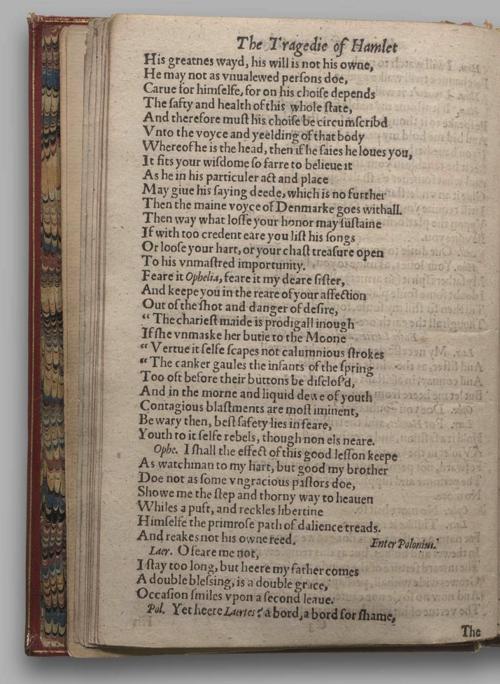 The Tragedie of Hamlet
His greatnes wayd, his will is not his owne,
He may not as vnualewed persons doe,
Carue for himselfe, for on his choise depends
The safty and health of this whole state,
And therefore must his choise be circumscribd
Vnto the voyce and yeelding of that body
Whereof he is the head, then if he saies he loues you,
It fits your wisdome so farre to belieue it
As he in his particuler act and place
May giue his saying deede, which is no further
Then the maine voyce of Denmarke goes withall.
Then way what losse your honor may sustaine
If with too credent eare you list his songs
Or loose your hart, or your chast treasure open
To his vnmastred importunity.
Feare it Ophelia, feare it my deare sister,
And keepe you in the reare of your affection
Out of the shot and danger of desire,
“ The chariest maide is prodigall inough
If she vnmaske her butie to the Moone
“ Vertue it selfe scapes not calumnious strokes
“ The canker gaules the infants of the spring
Too oft before their buttons be disclos'd,
And in the morne and liquid dewe of youth
Contagious blastments are most iminent,
Be wary then, best safety lies in feare,
Youth to it selfe rebels, though non els neare.
Ophe. I shall the effect of this good lesson keepe
As watchman to my hart, but good my brother
Doe not as some vngracious pastors doe,
Showe me the step and thorny way to heauen
Whiles a puft, and reckles libertine
Himselfe the primrose path of dalience treads.
And reakes not his owne reed. Enter Polonius.
Laer. O feare me not,
I stay too long, but heere my father comes
A double blessing, is a double grace,
Occasion smiles vpon a second leaue.
Pol. Yet heere Laertes? a bord, a bord for shame,
The